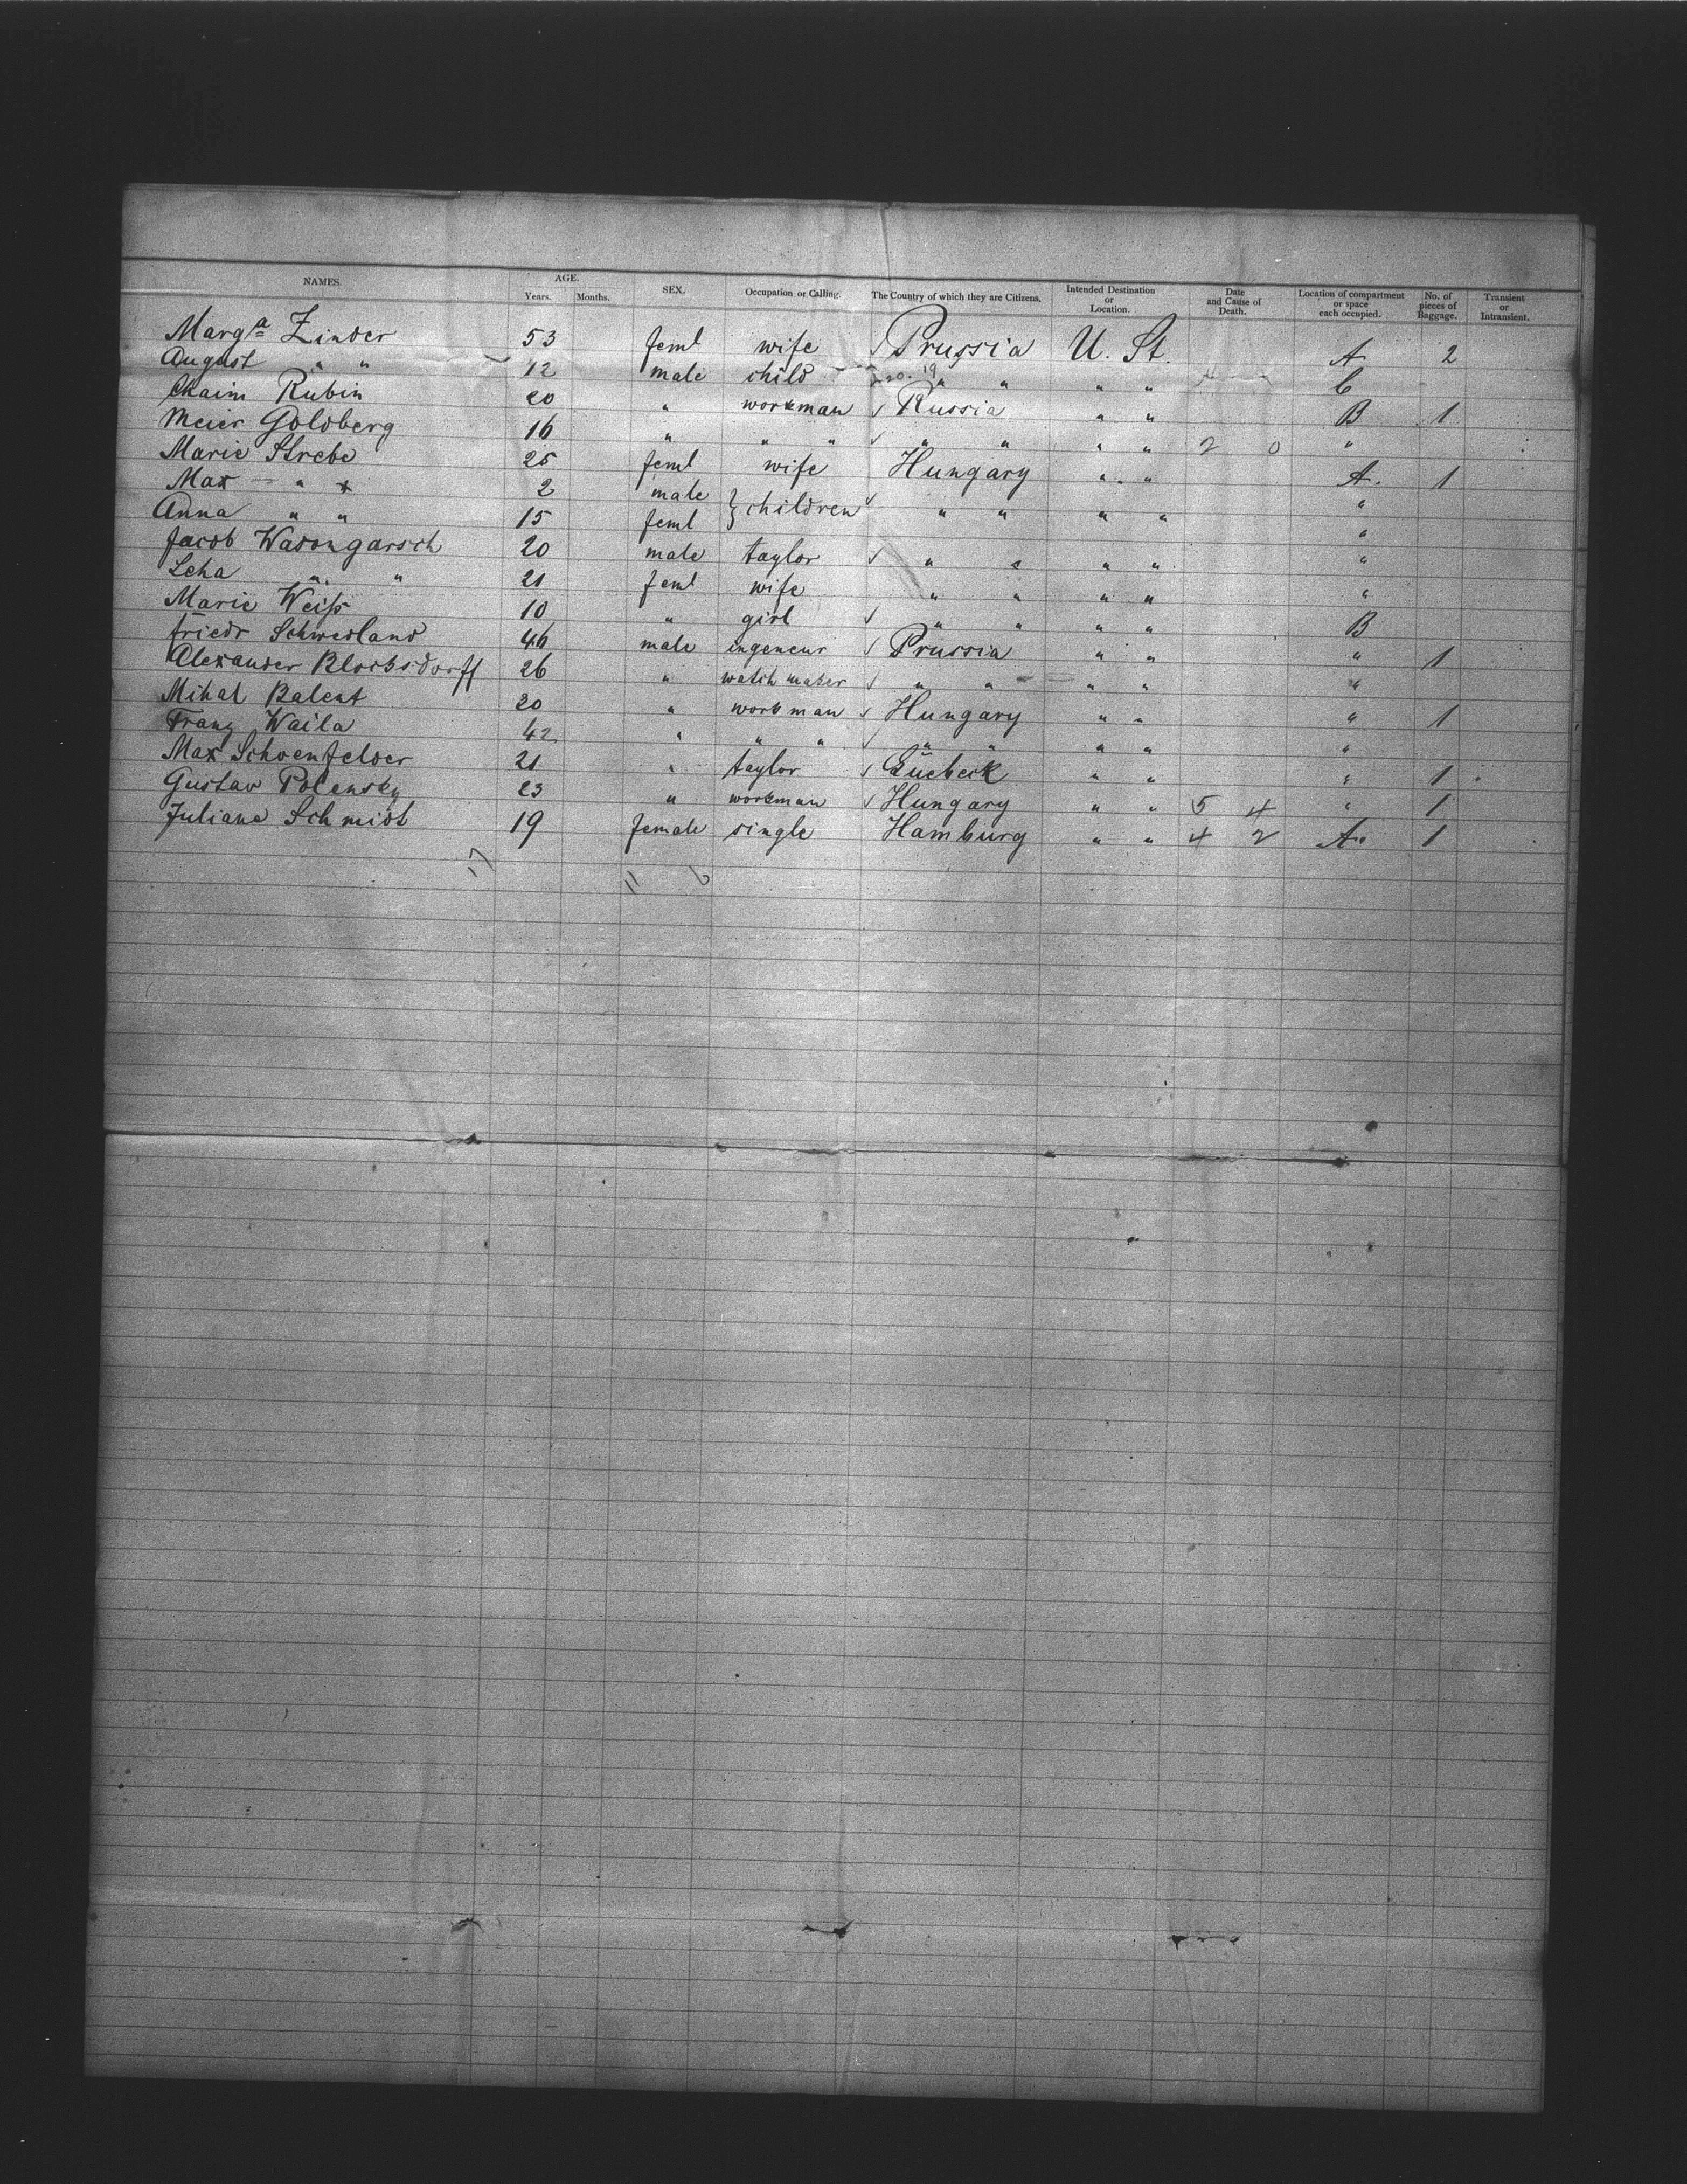 NAMES. AGE. Years. Months. SEX. Occupation or Calling. The Country of which they are Citizens. Intended Destination or Location. Date and Cause of Death. Location of compartment or space each occupied. No. of pieces of Baggage. Transient or Intransient.
Marga Zinder 53 feml wife ✓ Prussia U. St. A 2
August " " 12 male child " " " " C
Chaim Rubin 20 " workman ✓ Russia " " B 1
Meier Goldberg 16 " " " ✓ " " " " 2 0 "
Marie Strebe 25 feml wife Hungary " " A. 1
Max " x 2 male } children ✓ " " " " "
Anna " " 15 feml "
Jacob Wadongarsch 20 male taylor ✓ " " " " "
Leha " " 21 feml wife " " " " "
Marie Weiß 10 " girl ✓ " " " " B
friedr Schwedland 46 male ingeneur ✓ Prussia " " " 1
Alexander Blocksdorff 26 " watch maker ✓ " " " " "
Mihal Balent 20 " workman ✓ Hungary " " " 1
Franz Waila 42 " " " ✓ " " " " "
Max Schoenfelder 21 " taylor ✓ Luebeck " " " 1
Gustav Polansky 23 " workman ✓ Hungary " " 5 4 " 1
Juliane Schmidt 19 female single Hamburg " " 4 2 A. 1
17 11 6